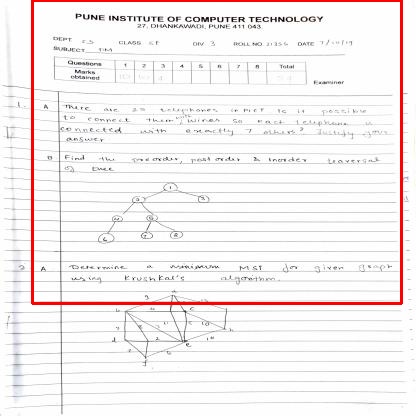 PUNE INSTITUTE OF COMPUTER TECHNOLOGY
27, DHANKAWADI, PUNE 411 043
DEPT CLASS SE DIV 3 ROLL NO. DATE 7/10/19
SUBJECT
Questions 1 2 3 4 5 6 7 8 Total
Marks obtained
Examiner
1. A There are telephones in PICT Is it possible
to connect them with wires so each telephone is
connected with exactly 7 others? Justify your
answer
B Find the preorder, postorder & Inorder traversal
of tree
1
2 3
6 8
2 A Determine a minimum MST for given graph
using Krushkal's algorithm.